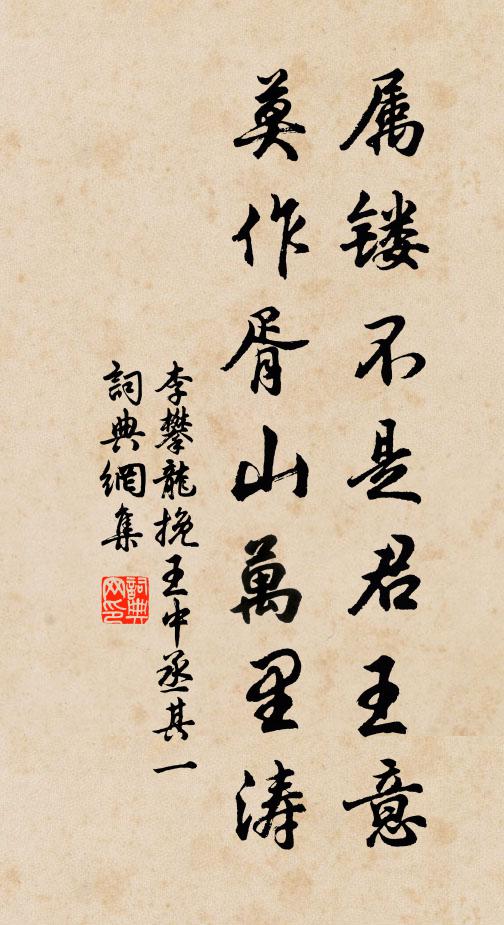 属镂不是君王意
莫作胥山萬里涛
李攀龍挽王中丞其一
詞典網集
詞典网印